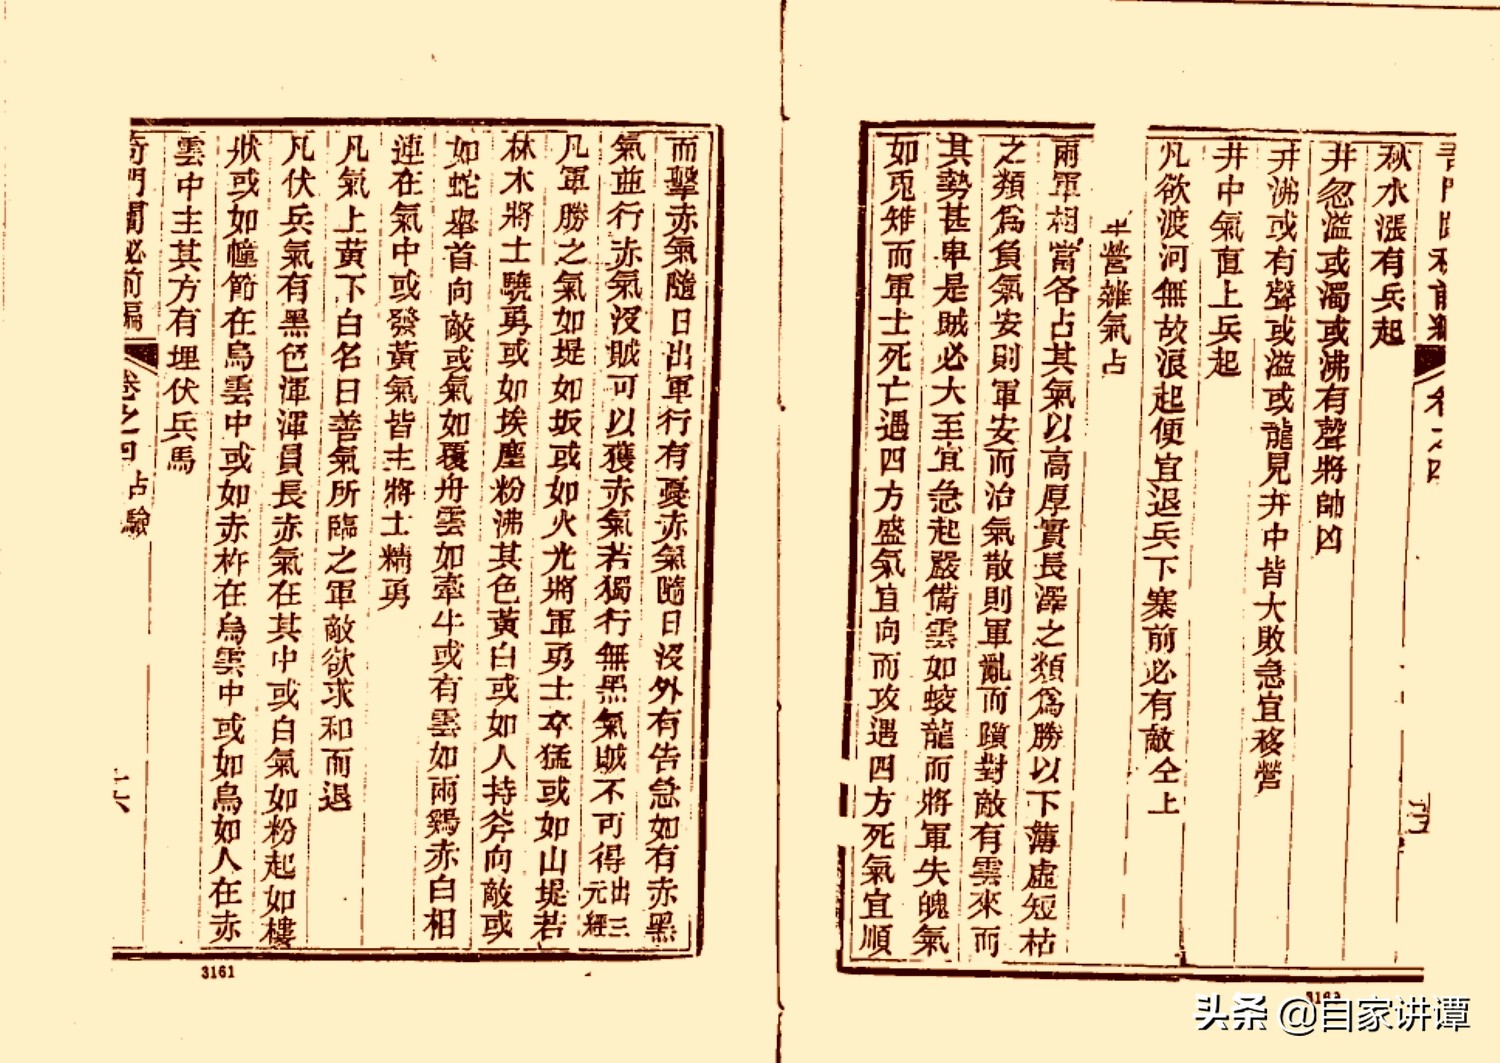 秋水漲有兵起
井忽溢或濁或沸有聲將帥凶
井沸或有聲或溢或龍見井中皆大敗急宜移營
井中氣直上兵起
凡欲渡河無故浪起便宜退兵下寨前必有敵仝上
營雜氣占
兩軍相當各占其氣以高厚實長澤之類爲勝以下薄虛短枯
之類爲負氣安則軍安而治氣散則軍亂而隤對敵有雲來而
其勢甚卑是賊必大至宜急起嚴備雲如蛟龍而將軍失魄氣
如兎雉而軍士死亡遇四方盛氣宜向而攻遇四方死氣宜順
而擊赤氣隨日出軍行有憂赤氣隨日沒外有告急如有赤黑
氣並行赤氣沒賊可以獲赤氣若獨行無黑氣賊不可得出三元經
凡軍勝之氣如堤如坂或如火光將軍勇士卒猛或如山堤若
林木將士驍勇或如埃塵粉沸其色黃白或如人持斧向敵或
如蛇舉首向敵或氣如覆舟雲如牽牛或有雲如兩鷄赤白相
連在氣中或發黃氣皆主將士精勇
凡氣上黃下白名曰善氣所臨之軍敵欲求和而退
凡伏兵氣有黑色渾渾員長赤氣在其中或白氣如粉起如樓
狀或如幢節在烏雲中或如赤杵在烏雲中或如烏如人在赤
雲中主其方有埋伏兵馬
奇門闡祕前編 卷之四 占驗 十六
3161
头条 @自家讲谭